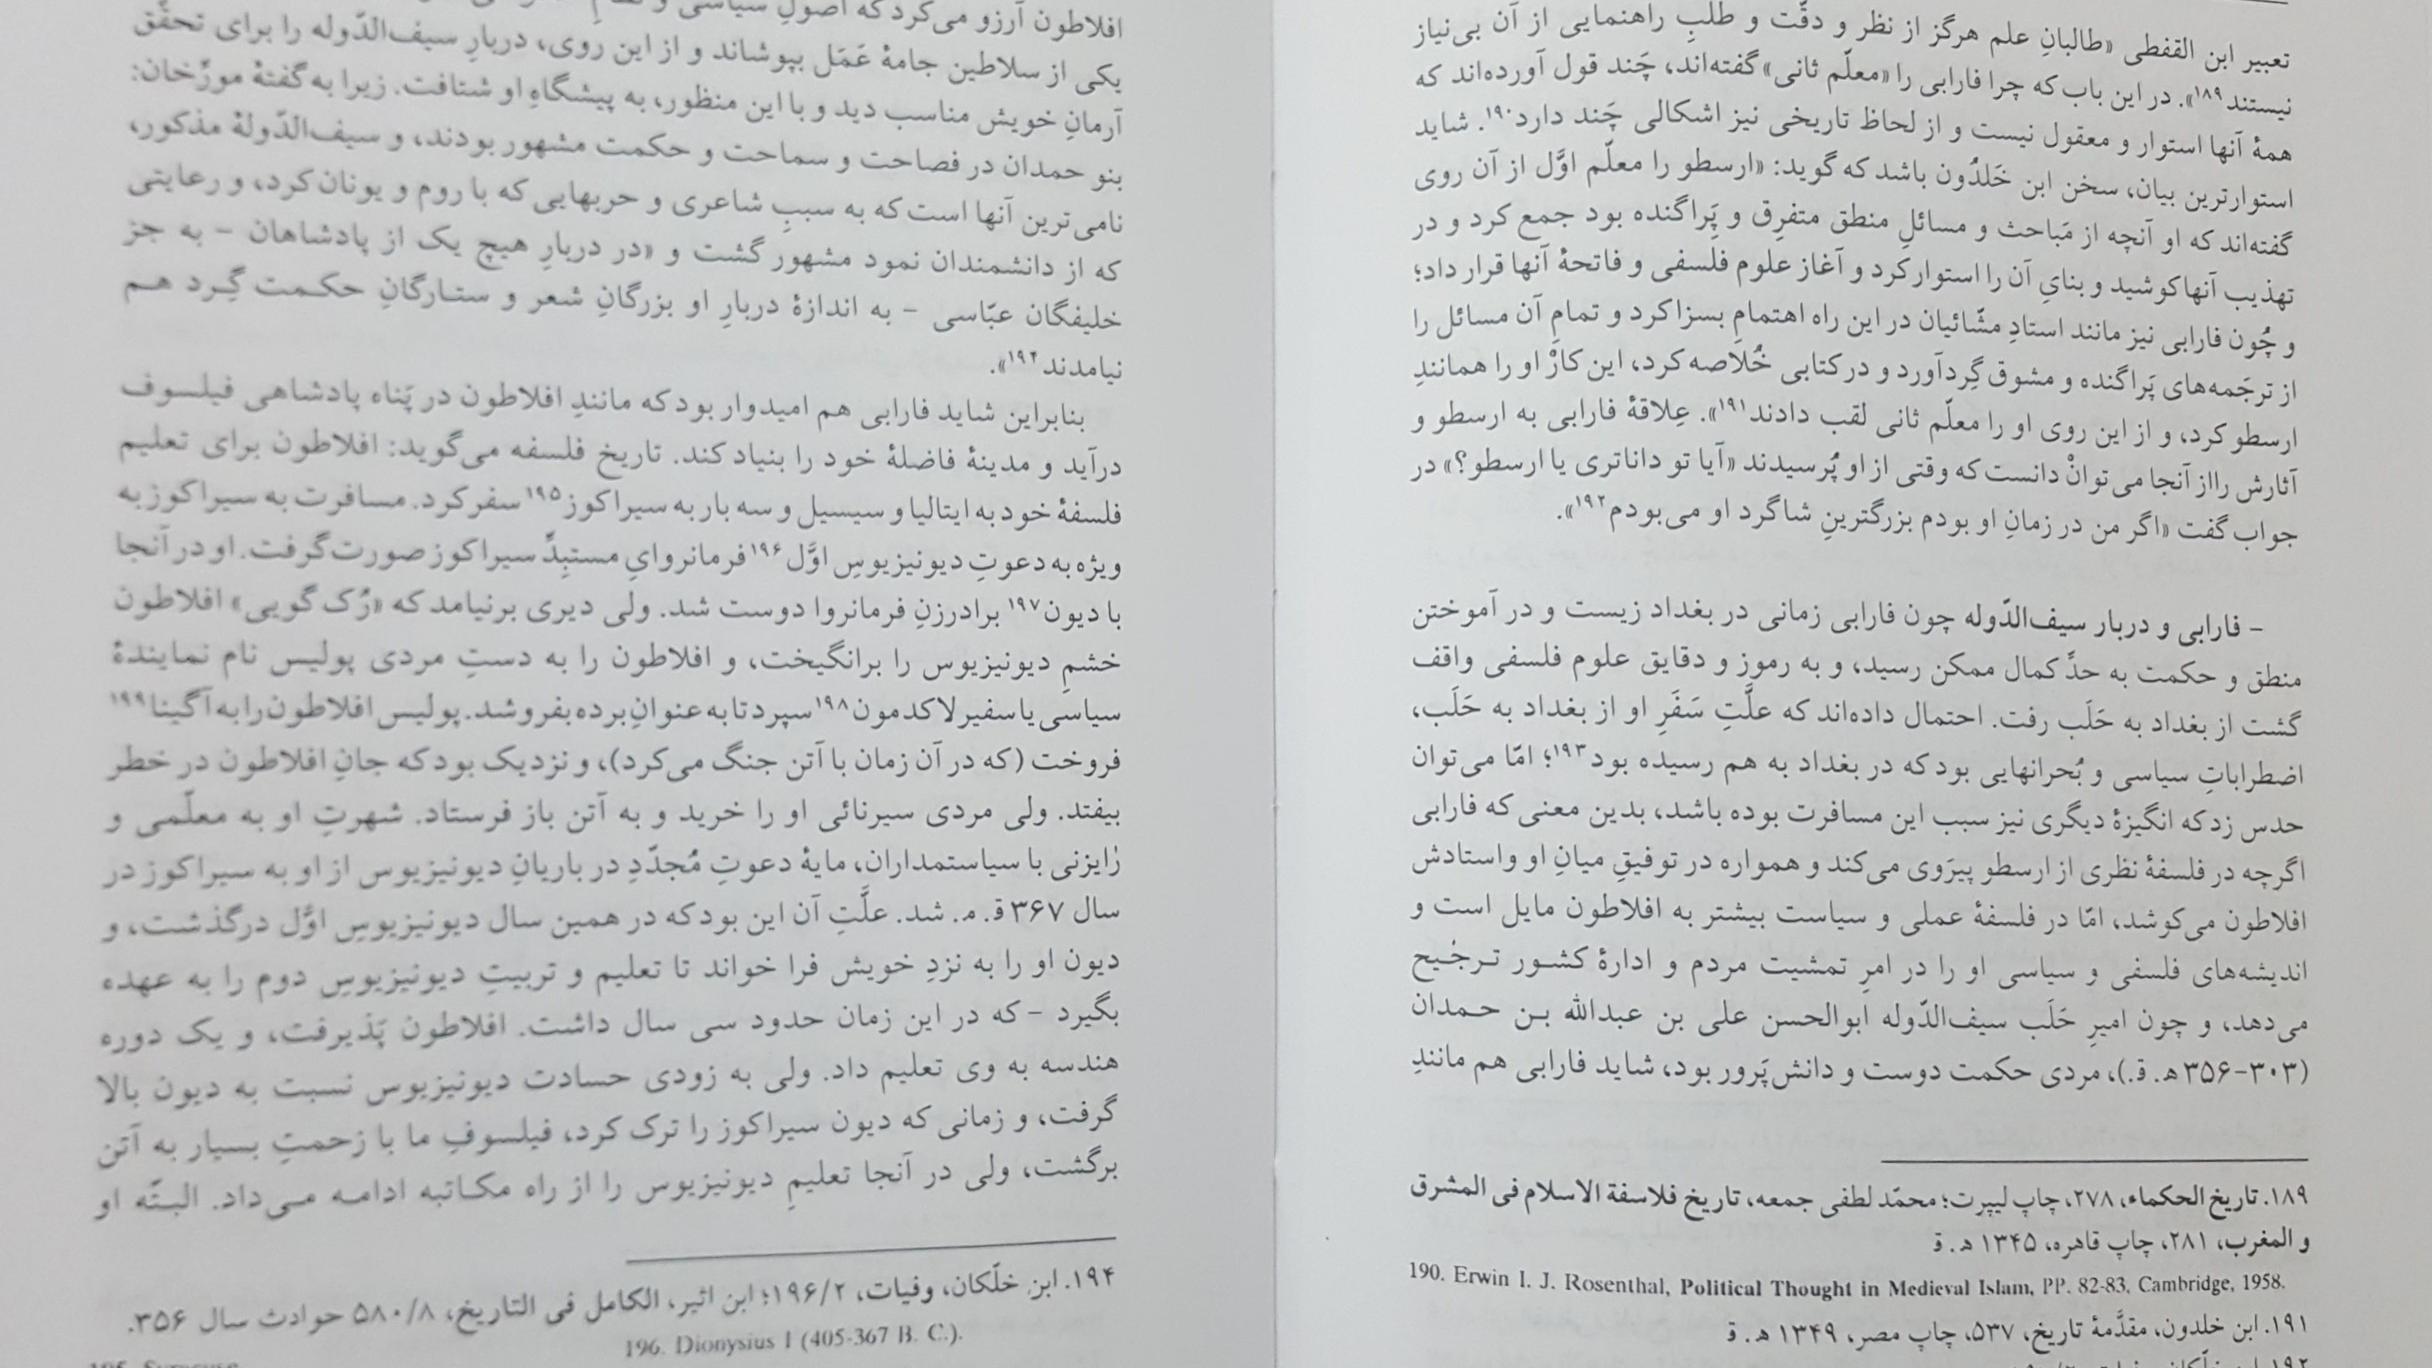 تعبیر ابن القفطی «طالبانِ علم هرگز از نظر و دقّت و طلبِ راهنمایی از آن بی‌نیاز
نیستند۱۸۹». در این باب که چرا فارابی را «معلّم ثانی» گفته‌اند، چَند قول آورده‌اند که
همهٔ آنها استوار و معقول نیست و از لحاظ تاریخی نیز اشکالی چَند دارد۱۹۰. شاید
استوارترین بیان، سخن ابن خَلدُون باشد که گوید: «ارسطو را معلّم اوَّل از آن روی
گفته‌اند که او آنچه از مَباحث و مسائلِ منطق متفرِق و پَراگنده بود جمع کرد و در
تهذیب آنها کوشید و بنایِ آن را استوار کرد و آغاز علوم فلسفی و فاتحهٔ آنها قرار داد؛
و چُون فارابی نیز مانند استادِ مشّائیان در این راه اهتمامِ بسزا کرد و تمامِ آن مسائل را
از ترجَمه‌های پَراگنده و مشوق گِردآورد و در کتابی خُلاصه کرد، این کارْ او را همانندِ
ارسطو کرد، و از این روی او را معلّم ثانی لقب دادند۱۹۱». عِلاقهٔ فارابی به ارسطو و
آثارش رااز آنجا می‌توانْ دانست که وقتی از او پُرسیدند «آیا تو داناتری یا ارسطو؟» در
جواب گفت «اگر من در زمانِ او بودم بزرگترینِ شاگرد او می‌بودم۱۹۲».
– فارابی و دربار سیف‌الدّوله چون فارابی زمانی در بغداد زیست و در آموختن
منطق و حکمت به حدِّ کمال ممکن رسید، و به رموز و دقایق علوم فلسفی واقف
گشت از بغداد به حَلَب رفت. احتمال داده‌اند که علَّتِ سَفَرِ او از بغداد به حَلَب،
اضطراباتِ سیاسی و بُحرانهایی بود که در بغداد به هم رسیده بود۱۹۳؛ امّا می‌توان
حدس زد که انگیزهٔ دیگری نیز سبب این مسافرت بوده باشد، بدین معنی که فارابی
اگرچه در فلسفهٔ نظری از ارسطو پیرَوی می‌کند و همواره در توفیقِ میانِ او و استادش
افلاطون می‌کوشد، امّا در فلسفهٔ عملی و سیاست بیشتر به افلاطون مایل است و
اندیشه‌های فلسفی و سیاسی او را در امرِ تمشیت مردم و ادارهٔ کشور ترجُیح
می‌دهد، و چون امیرِ حَلَب سیف‌الدّوله ابوالحسن علی بن عبدالله بن حمدان
(۳۰۳-۳۵۶ ه‍. ق.)، مردی حکمت دوست و دانش‌پَرور بود، شاید فارابی هم مانندِ
۱۸۹. تاریخ الحکماء، ۲۷۸، چاپ لیپرت؛ محمّد لطفی جمعه، تاریخ فلاسفة الاسلام فی المشرق
و المغرب، ۲۸۱، چاپ قاهره، ۱۳۴۵ ه‍. ق
190. Erwin I. J. Rosenthal, Political Thought in Medieval Islam, PP. 82-83, Cambridge, 1958.
۱۹۱. ابن خلدون، مقدَّمهٔ تاریخ، ۵۳۷، چاپ مصر، ۱۳۴۹ ه‍. ق
افلاطون آرزو می‌کرد که اصولِ سیاسی و
یکی از سلاطین جامهٔ عَمَل بپوشاند و از این روی، دربارِ سیف‌الدّوله را برای تحقّق
آرمانِ خویش مناسب دید و با این منظور، به پیشگاهِ او شتافت. زیرا به گفتهٔ مورِّخان:
بنو حمدان در فصاحت و سماحت و حکمت مشهور بودند، و سیف‌الدّولهٔ مذکور،
نامی‌ترین آنها است که به سببِ شاعری و حربهایی که با روم و یونان کرد، و رعایتی
که از دانشمندان نمود مشهور گشت و «در دربارِ هیچ یک از پادشاهان – به جز
خلیفگان عبّاسی – به اندازهٔ دربارِ او بزرگانِ شعر و ستارگانِ حکمت گِرد هم
نیامدند۱۹۴».
بنابراین شاید فارابی هم امیدوار بود که مانندِ افلاطون در پَناه پادشاهی فیلسوف
درآید و مدینهٔ فاضلهٔ خود را بنیاد کند. تاریخ فلسفه می‌گوید: افلاطون برای تعلیم
فلسفهٔ خود به ایتالیا و سیسیل و سه بار به سیراکوز۱۹۵ سفر کرد. مسافرت به سیراکوز به
ویژه به دعوتِ دیونیزیوسِ اوَّل۱۹۶ فرمانروایِ مستبِدِّ سیراکوز صورت گرفت. او در آنجا
با دیون۱۹۷ برادرزنِ فرمانروا دوست شد. ولی دیری برنیامد که «رُک گویی» افلاطون
خشمِ دیونیزیوس را برانگیخت، و افلاطون را به دستِ مردی پولیس نام نمایندهٔ
سیاسی یا سفیر لاکدمون۱۹۸ سپرد تا به عنوانِ برده بفروشد. پولیس افلاطون را به آگینا۱۹۹
فروخت (که در آن زمان با آتن جنگ می‌کرد)، و نزدیک بود که جانِ افلاطون در خطر
بیفتد. ولی مردی سیرنائی او را خرید و به آتن باز فرستاد. شهرتِ او به معلّمی و
رٰایزنی با سیاستمداران، مایهٔ دعوتِ مُجدّدِ در باریانِ دیونیزیوس از او به سیراکوز در
سال ۳۶۷ ق. م. شد. علَّتِ آن این بود که در همین سال دیونیزیوسِ اوَّل درگذشت، و
دیون او را به نزدِ خویش فرا خواند تا تعلیم و تربیتِ دیونیزیوسِ دوم را به عهده
بگیرد – که در این زمان حدود سی سال داشت. افلاطون پَذیرفت، و یک دوره
هندسه به وی تعلیم داد. ولی به زودی حسادت دیونیزیوس نسبت به دیون بالا
گرفت، و زمانی که دیون سیراکوز را ترک کرد، فیلسوفِ ما با زحمتِ بسیار به آتن
برگشت، ولی در آنجا تعلیمِ دیونیزیوس را از راه مکاتبه ادامه می‌داد. البتّه او
۱۹۴. ابن خلّکان، وفیات، ۱۹۶/۲؛ ابن اثیر، الکامل فی التاریخ، ۵۸۰/۸ حوادث سال ۳۵۶.
196. Dionysius I (405-367 B. C.).